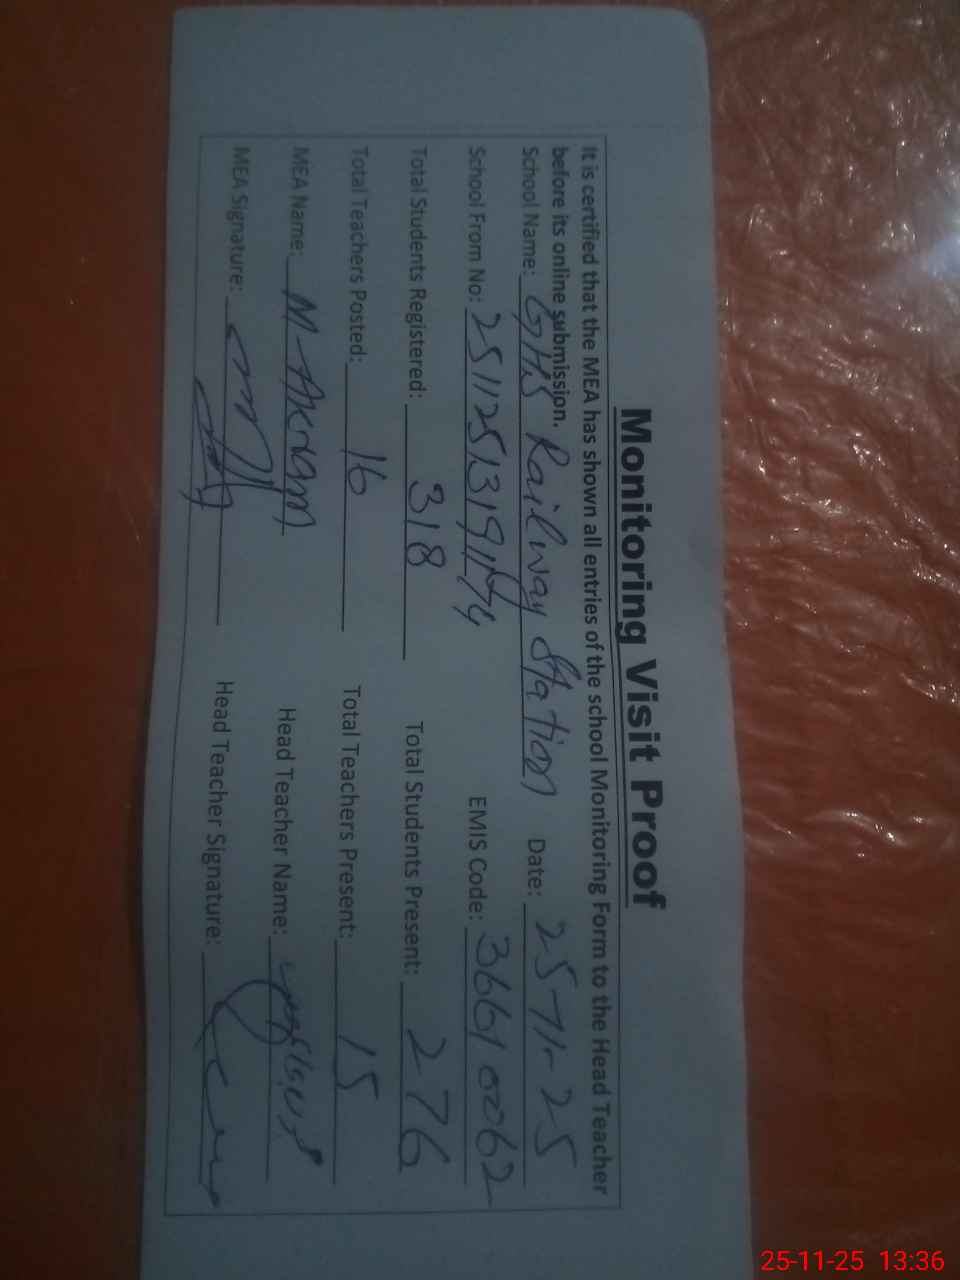 Monitoring Visit Proof
It is certified that the MEA has shown all entries of the school Monitoring Form to the Head Teacher
before its online submission.
School Name: GHS Railway Station Date: 25-11-25
School From No: EMIS Code: 36610062
Total Students Registered: 318 Total Students Present: 276
Total Teachers Posted: 16 Total Teachers Present: 15
MEA Name: M Akram Head Teacher Name:
MEA Signature: Head Teacher Signature:
25-11-25 13:36